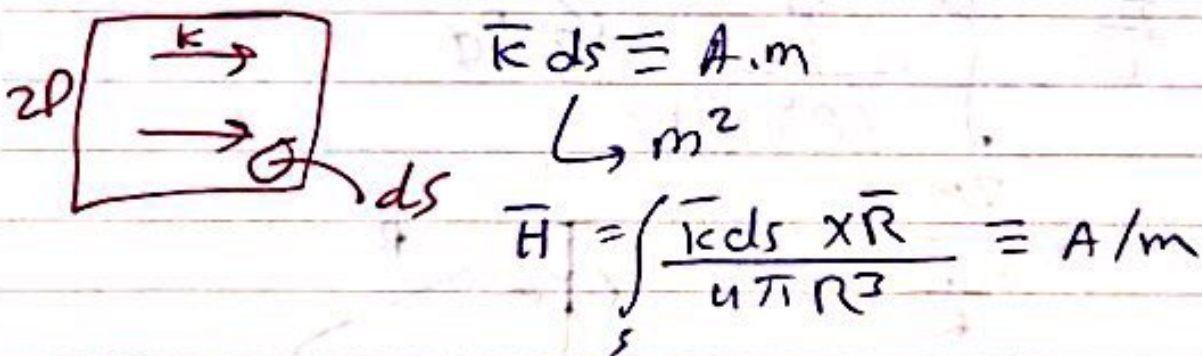 K
2D
ds
K̄ ds ≡ A.m
↳ m²
H̄ = ∫s K̄ds × R̄ / 4πR³ ≡ A/m